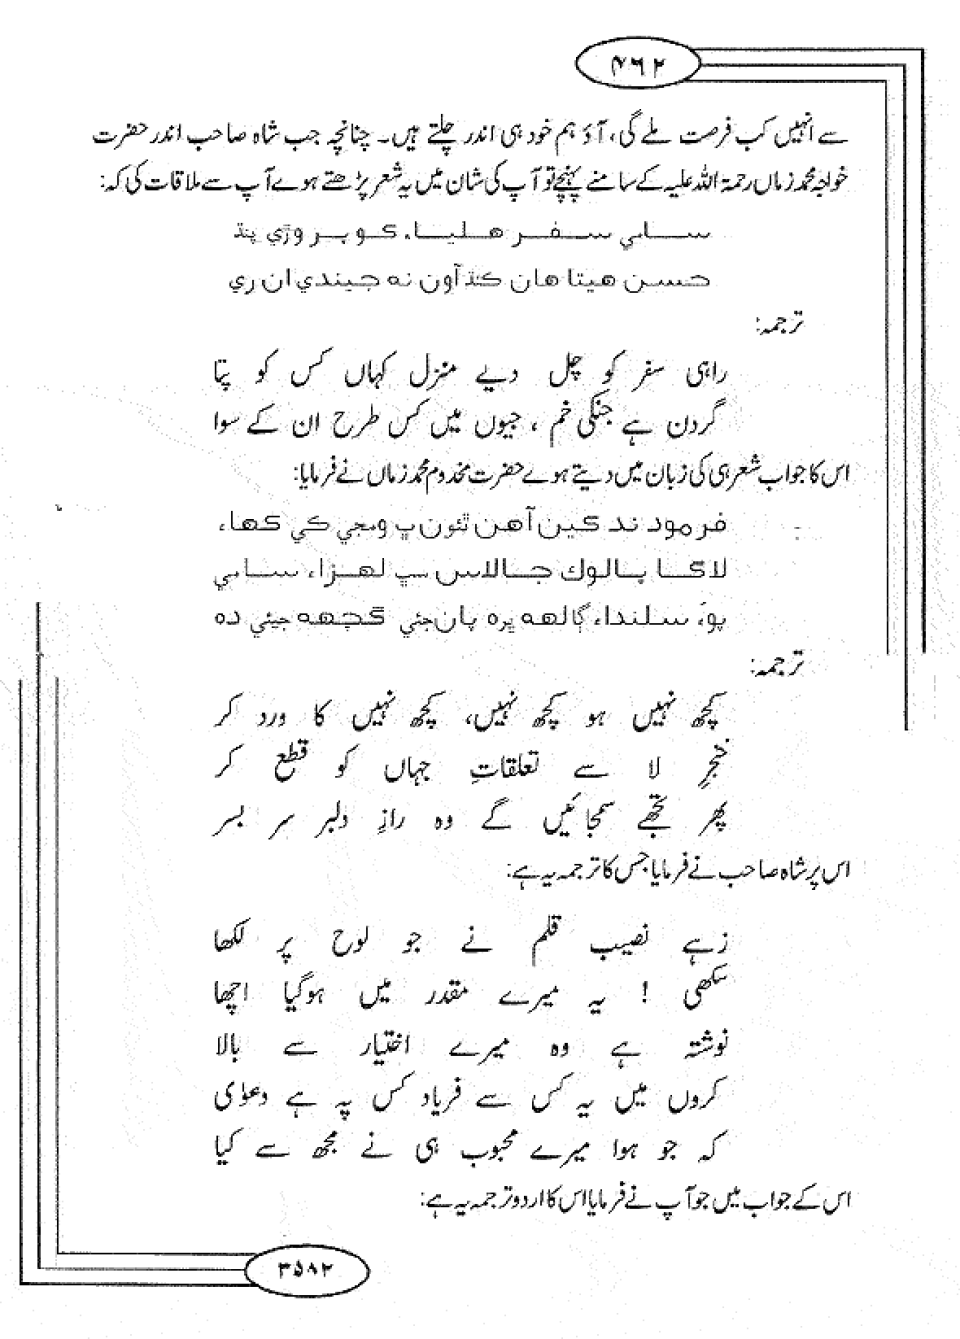 ۴۶۲
سے انہیں کب فرصت ملے گی، آؤ ہم خود ہی اندر چلتے ہیں۔ چنانچہ جب شاہ صاحب اندر حضرت
خواجہ محمد زماں رحمۃ اللہ علیہ کے سامنے پہنچے تو آپ کی شان میں یہ شعر پڑھتے ہوے آپ سے ملاقات کی کہ:
سامي سفر هليا، كو پروڙي پنڌ
حسن هيتا هان ڪنڌ آون نه جيندي ان ري
ترجمہ:
راہی سفر کو چل دیے منزل کہاں کس کو پتا
گردن ہے جنکی خم ، جیوں میں کس طرح ان کے سوا
اس کا جواب شعر ہی کی زبان میں دیتے ہوے حضرت مخدوم محمد زماں نے فرمایا:
ڪين آهن ٿئون ۾ وڃي ڪي ڪها،
لاڳا سڀ لهزا، سامي
پوءِ سلندا، ڳالهه پره پان جئي ڳجهه جيئي ده
ترجمہ:
کچھ نہیں ہو کچھ نہیں، کچھ نہیں کا ورد کر
خنجرِ لا سے تعلقاتِ جہاں کو قطع کر
پھر تجھے سمجائیں گے وہ رازِ دلبر سر بسر
اس پر شاہ صاحب نے فرمایا جس کا ترجمہ یہ ہے:
زہے نصیب قلم نے جو لوح پر لکھا
سکھی ! یہ میرے مقدر میں ہوگیا اچھا
نوشتہ ہے وہ میرے اختیار سے بالا
کروں میں یہ کس سے فریاد کس پہ ہے دعوٰی
کہ جو ہوا میرے محبوب ہی نے مجھ سے کیا
اس کے جواب میں جو آپ نے فرمایا اس کا اردو ترجمہ یہ ہے:
۳۵۸۲